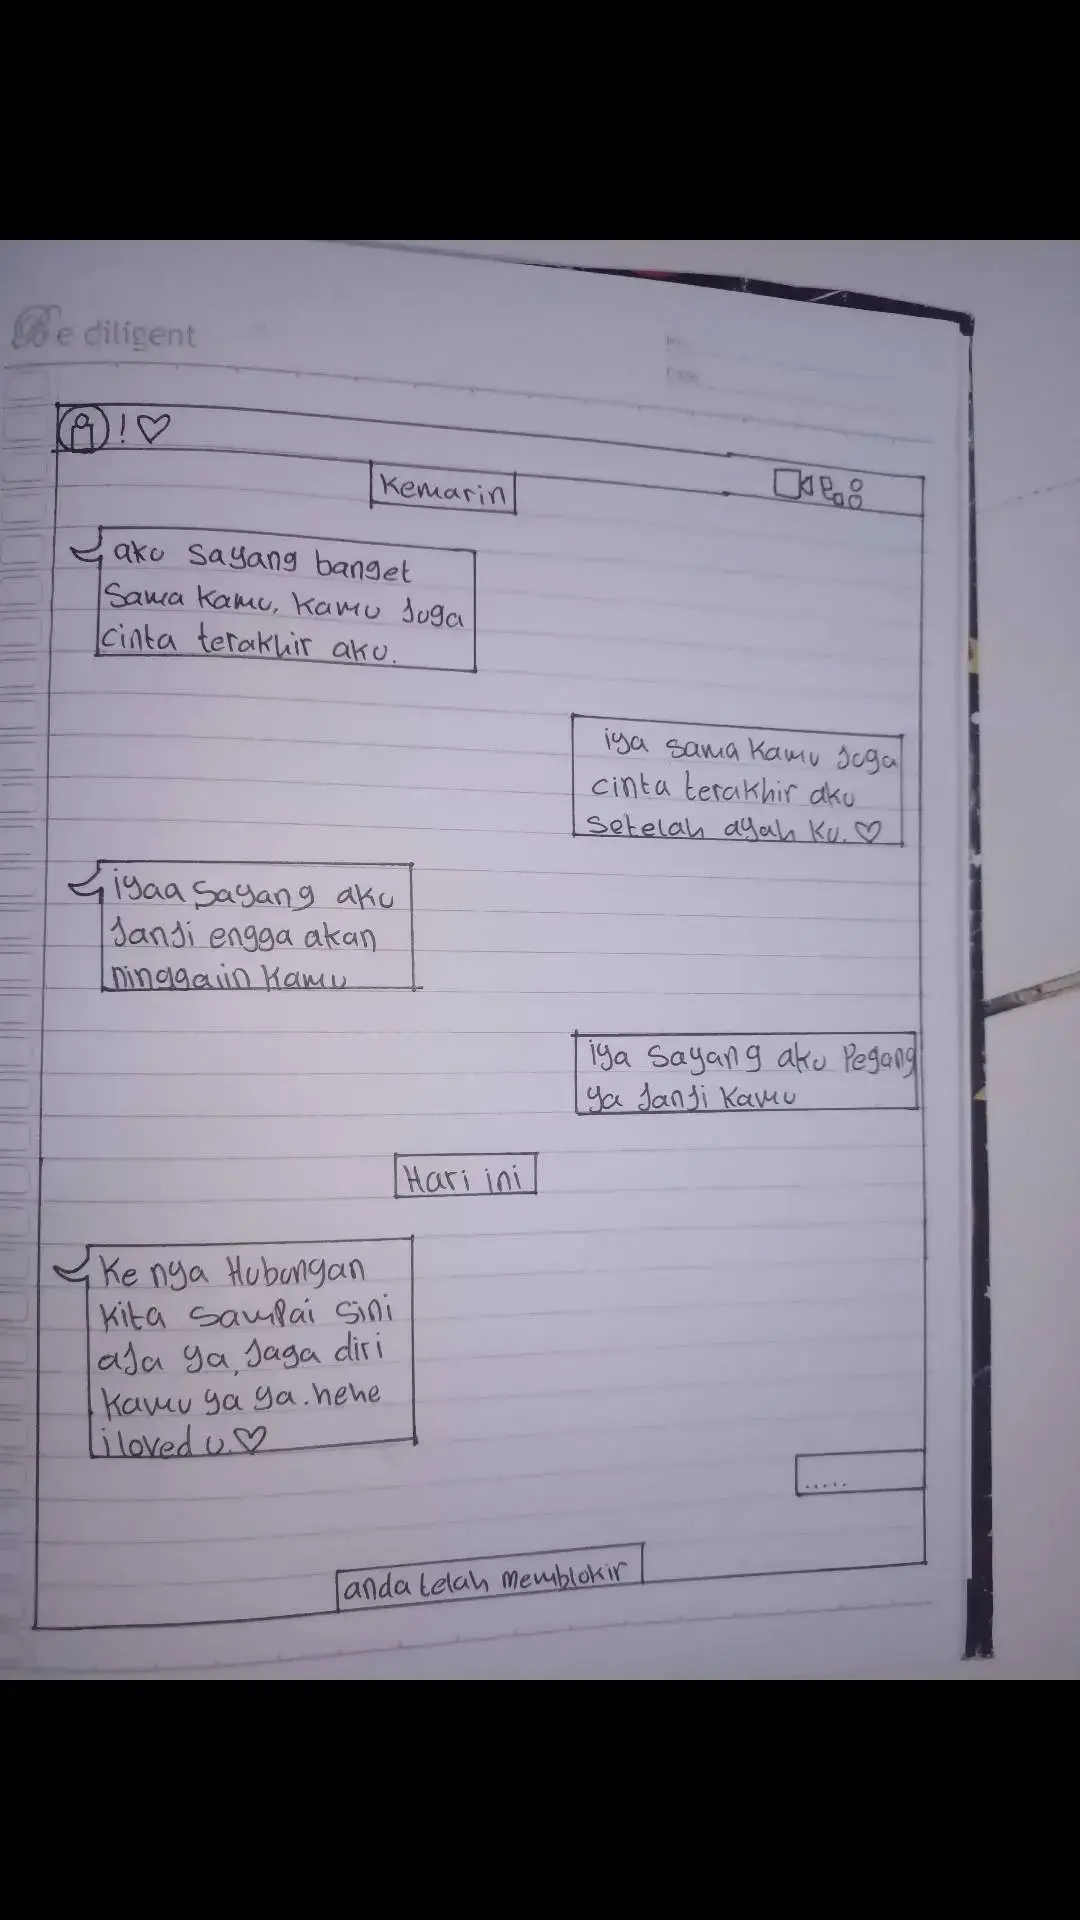 Be diligent
! ♡
Kemarin
aku sayang banget
Sama kamu, kamu Juga
cinta terakhir aku.
iya sama kamu Juga
cinta terakhir aku
setelah ayah ku. ♡
iyaa sayang aku
Janji engga akan
ninggalin kamu
iya sayang aku Pegang
ya Janji kamu
Hari ini
Ke nya Hubungan
kita sampai sini
aJa ya, Jaga diri
kamu ya ya. hehe
i loved u. ♡
.....
anda telah memblokir